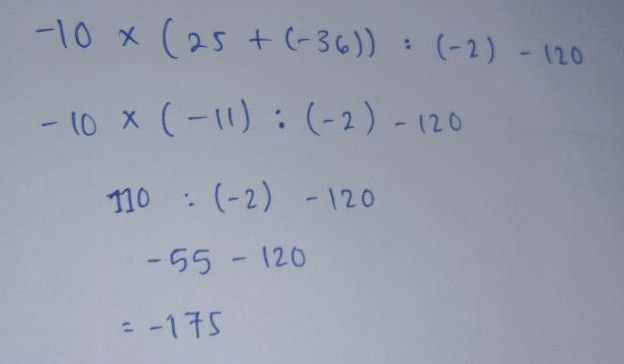 -10 × (25 + (-36)) : (-2) - 120
-10 × (-11) : (-2) - 120
110 : (-2) - 120
-55 - 120
= -175